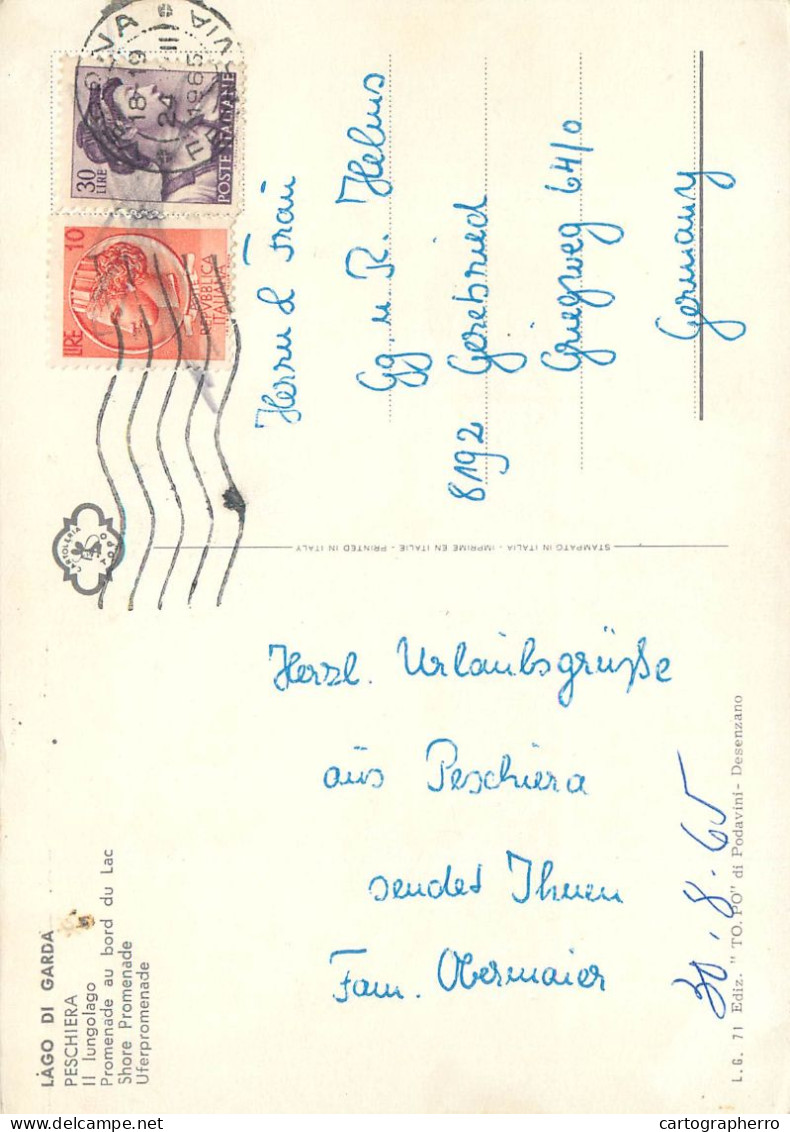 LAGO DI GARDA
PESCHIERA
Il lungolago
Promenade au bord du Lac
Shore Promenade
Uferpromenade
Herzl. Urlaubsgrüße
aus Peschiera
sendet Ihnen
Fam. Obermaier
30.8.65
L.G. 71 Ediz. "TO.PO" di Podavini - Desenzano
STAMPATO IN ITALIA - IMPRIME EN ITALIE - PRINTED IN ITALY
30
LIRE
POSTE ITALIANE
10
LIRE
REPVBBLICA
ITALIANA
18-19
24
1965
Herrn u Frau
Gg. u. R. Helms
8192 Geretsried
Griegweg 64/0
Germany
cartographerro